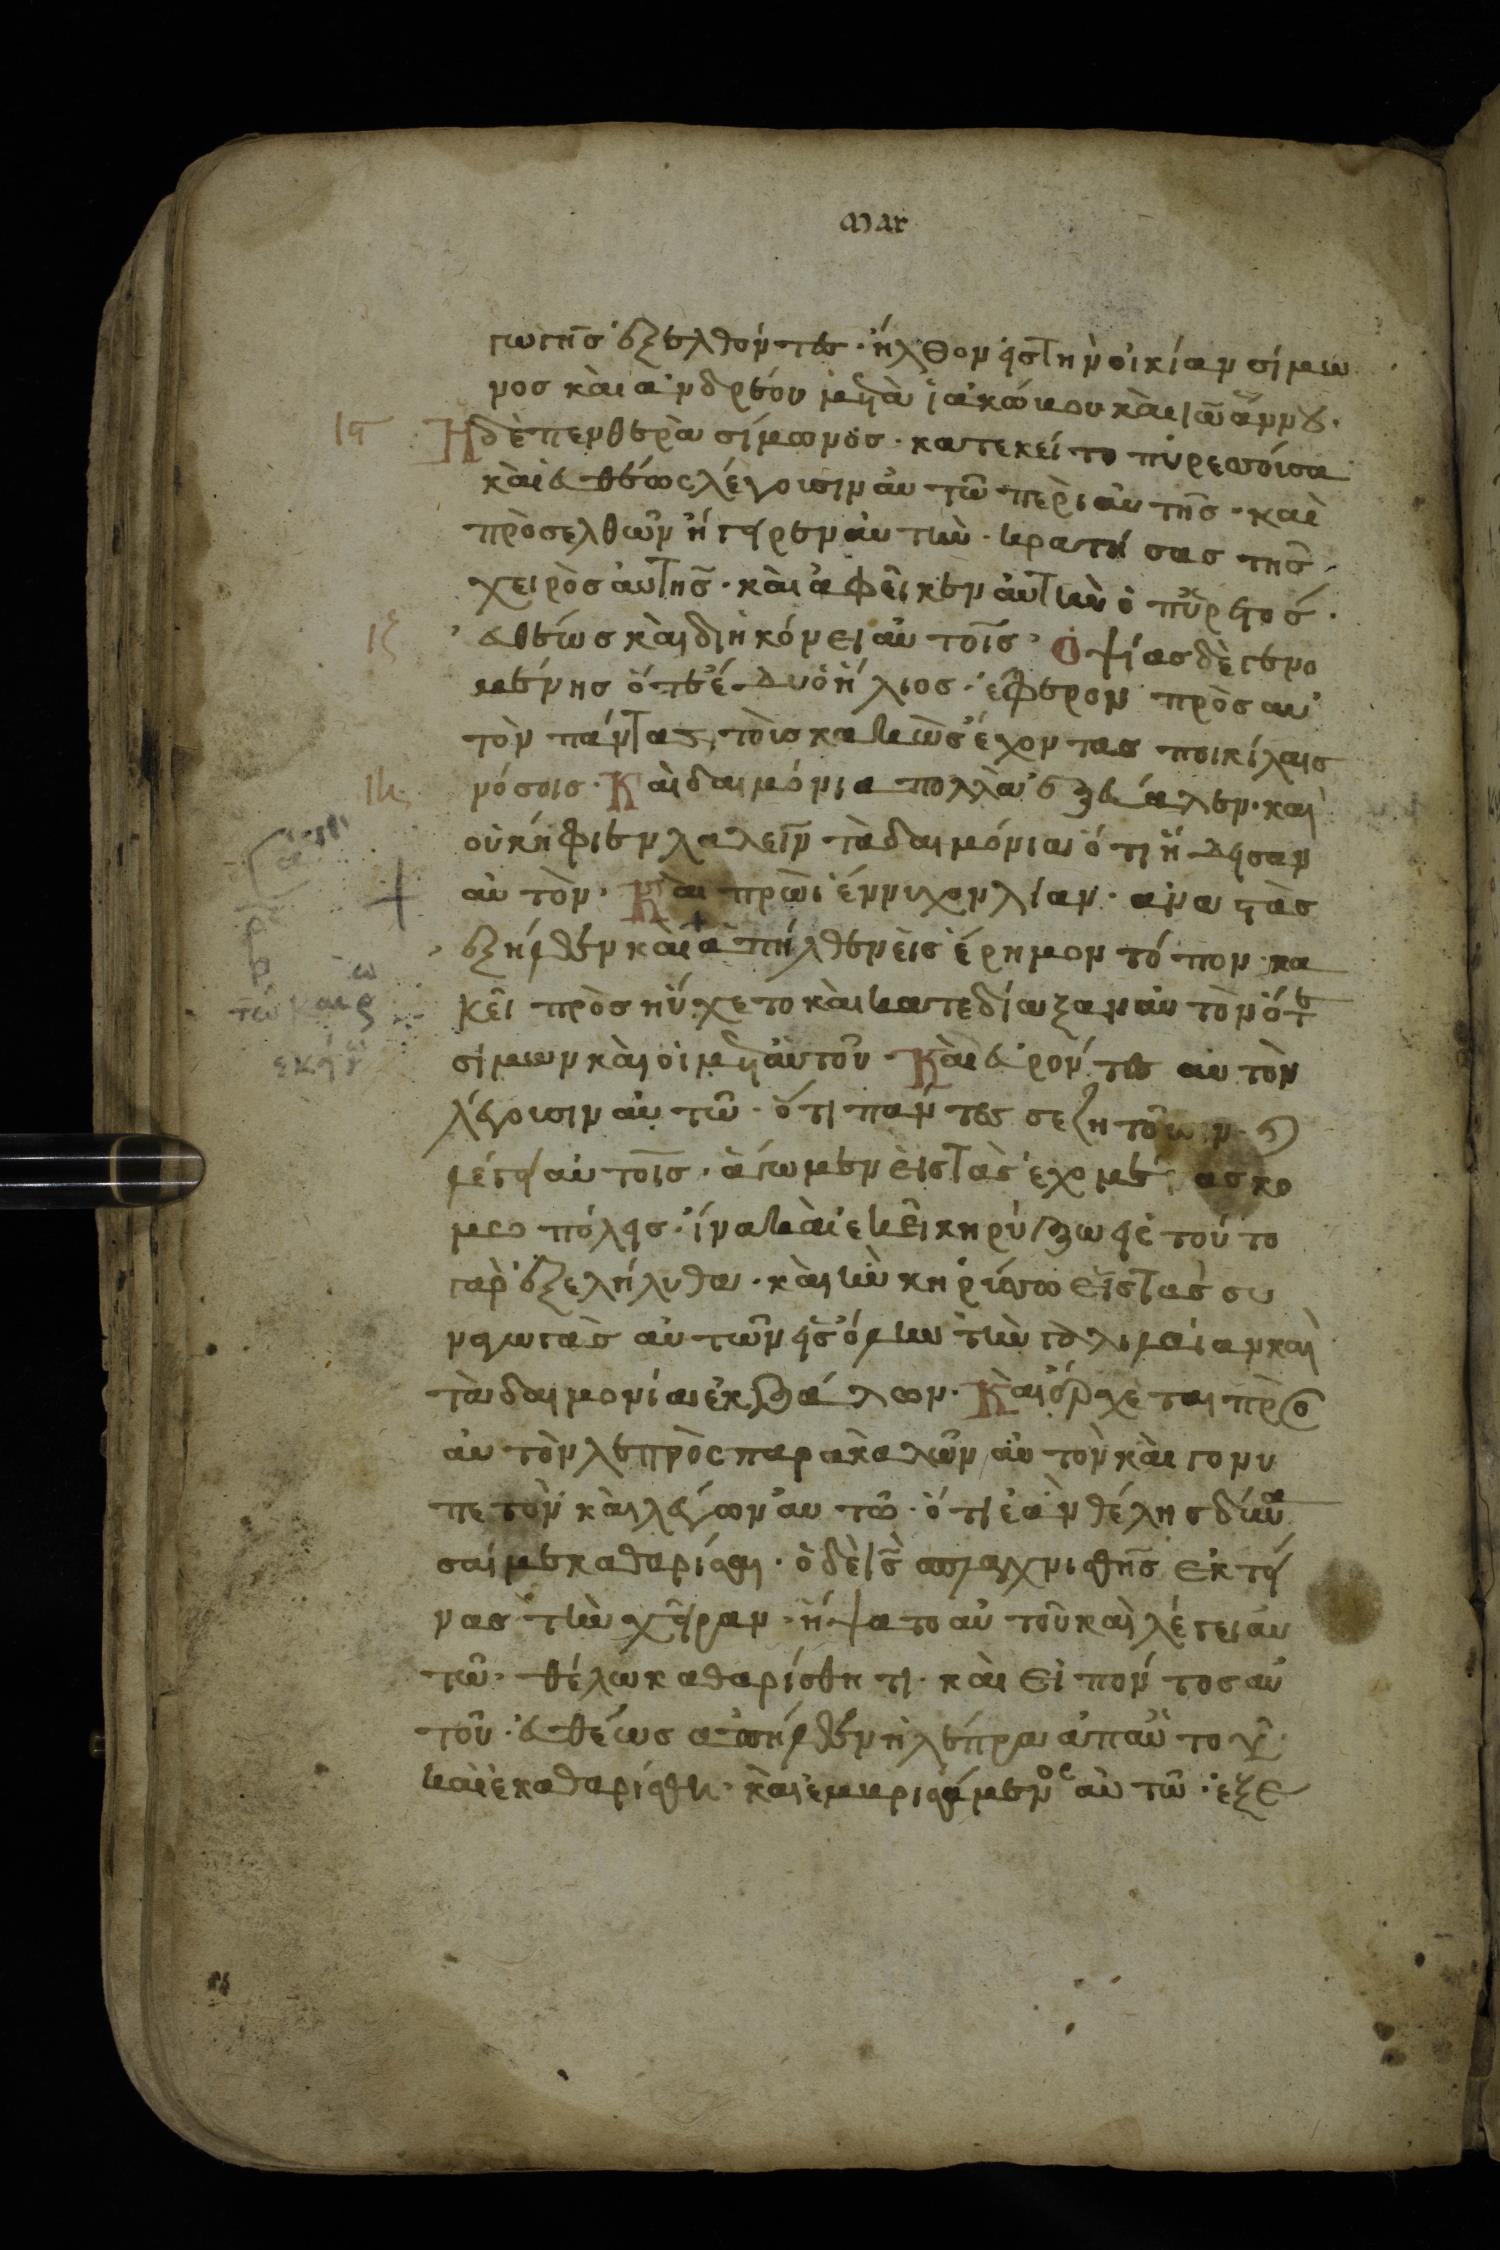 mar
γωγῆς ἐξελθόντες · ἦλθον εἰς τὴν οἰκίαν σίμω
νος καὶ ἀνδρέου μετὰ ἰακώβου καὶ ἰωάννου ·
ις Ἡ δὲ πενθερὰ σίμωνος · κατεκεῖτο πυρέσσουσα
καὶ εὐθέως λέγουσιν αὐτῶ περὶ αὐτῆς · καὶ
προσελθὼν ἤγειρεν αὐτὴν · κρατήσας τῆς
χειρὸς αὐτῆς · καὶ ἀφῆκεν αὐτὴν ὁ πυρετός ·
ιζ εὐθέως καὶ διηκόνει αὐτοῖς · Ὀψίας δὲ γενο
μένης ὅτε ἔδυ ὁ ἥλιος · ἔφερον πρὸς αὐ
τὸν πάντας τοὺς κακῶς ἔχοντας ποικίλαις
ιη νόσοις · Καὶ δαιμόνια πολλὰ ἐξέβαλεν · καὶ
οὐκ ἤφιεν λαλεῖν τὰ δαιμόνια ὅτι ἤδησαν
αὐτὸν · Καὶ πρωῒ ἔννυχον λίαν · ἀναστὰς
ἐξῆλθεν καὶ ἀπῆλθεν εἰς ἔρημον τόπον · κα
κεῖ προσηύχετο καὶ κατεδίωξαν αὐτὸν ὅτε
σίμων καὶ οἱ μετ αὐτοῦ · Καὶ εὑρόντες αὐτὸν
λέγουσιν αὐτῶ · ὅτι πάντες σε ζητοῦσιν · καὶ
λέγει αὐτοῖς · ἄγωμεν εἰς τὰς ἐχομένας κο
μο πόλεις · ἵνα καὶ ἐκεῖ κηρύξω εἰς τοῦτο
γὰρ ἐξελήλυθα · καὶ ἦν κηρύσσω εἰς τὰς συ
ναγωγὰς αὐτῶν εἰς ὅλην τὴν γαλιλαίαν καὶ
τὰ δαιμονία ἐκβάλλων · Καὶ ἔρχεται πρὸς
αὐτὸν λεπρὸς παρακαλῶν αὐτὸν καὶ γονυ
πετὸν καὶ λέγων αὐτῶ · ὅτι ἐὰν θέλης δύνα
σαί με καθαρίσαι · ὁ δὲ ις σπλαγχνισθεῖς ἐκτεί
νας τὴν χεῖραν · ἥψατο αὐτοῦ καὶ λέγει αὐ
τῶ · θέλω καθαρίσθητι · καὶ εἰπόντος αὐ
τοῦ · εὐθέως ἀπῆλθεν ἡ λέπρα ἀπ αὐτοῦ
καὶ ἐκαθαρίσθη · καὶ ἐμβρισάμενος αὐτῶ · ἐξε